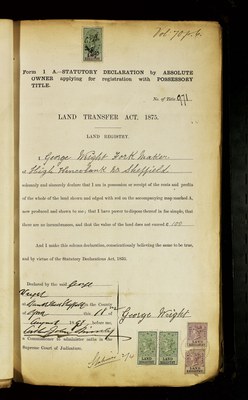 Vol 70 p. 6.
Form 1 A.—STATUTORY DECLARATION by ABSOLUTE
OWNER applying for registration with POSSESSORY
TITLE.
No. of Title 971
LAND TRANSFER ACT, 1875.
LAND REGISTRY.
I, George Wright Fork Maker
of High Hence Lane Nr Sheffield
solemnly and sincerely declare that I am in possession or receipt of the rents and profits
of the whole of the land shown and edged with red on the accompanying map marked A,
now produced and shown to me; that I have power to dispose thereof in fee simple, that
there are no incumbrances, and that the value of the land does not exceed £ 100
And I make this solemn declaration, conscientiously believing the same to be true,
and by virtue of the Statutory Declarations Act, 1835.
Declared by the said George
Wright
at Sheffield in the County
of York this 11 th
August before me,
John
A Commissioner to administer oaths in the
Supreme Court of Judicature.
George Wright
LAND REGISTRY
LAND REGISTRY
LAND REGISTRY
LAND REGISTRY